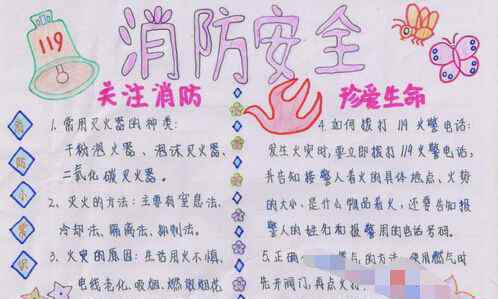 119
消防安全
关注消防
珍爱生命
消防小常识
1、常用灭火器的种类:
干粉泡灭火器、泡沫灭火器、
二氧化碳灭火器。
2、灭火的方法:主要有窒息法、
冷却法、隔离法、抑制法。
3、火灾的原因:生活用火不慎、
电线老化、吸烟、燃放烟花
4、如何拨打119火警电话:
发生火灾时,要立即拨打119火警电话,
并告知接警人着火的具体地点、火势
的大小、是什么物品着火,还要告知报
警人的姓名和报警用的电话号码。
5、正确 的方法:使用燃气时
先开阀门,再点火